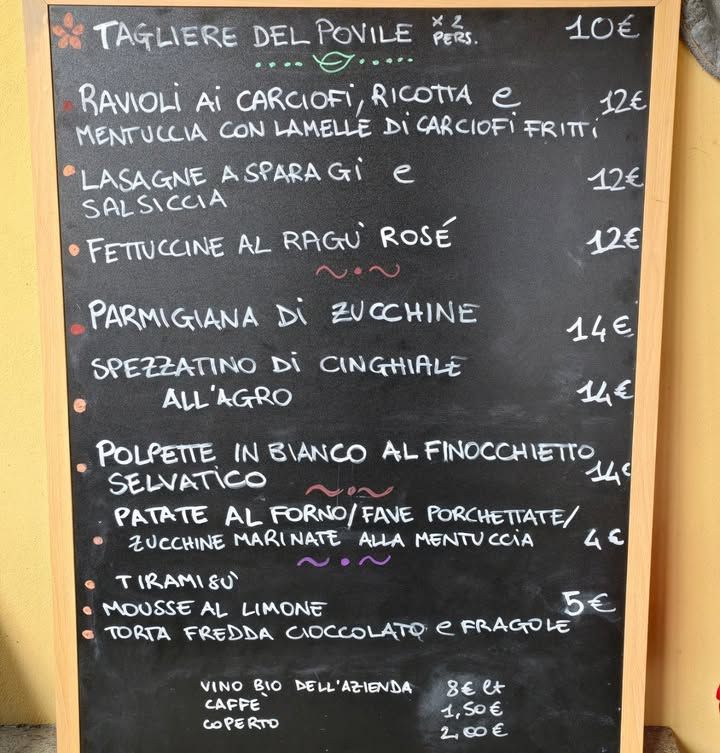 TAGLIERE DEL POVILE x 2 PERS. 10€
RAVIOLI AI CARCIOFI, RICOTTA e 12€
MENTUCCIA CON LAMELLE DI CARCIOFI FRITTI
LASAGNE ASPARAGI e 12€
SALSICCIA
FETTUCCINE AL RAGU' ROSÉ 12€
PARMIGIANA DI ZUCCHINE 14€
SPEZZATINO DI CINGHIALE
ALL'AGRO 14€
POLPETTE IN BIANCO AL FINOCCHIETTO 14€
SELVATICO
PATATE AL FORNO/FAVE PORCHETTATE/
ZUCCHINE MARINATE ALLA MENTUCCIA 4€
TIRAMISU'
MOUSSE AL LIMONE 5€
TORTA FREDDA CIOCCOLATO e FRAGOLE
VINO BIO DELL'AZIENDA 8€ lt
CAFFE' 1,50€
COPERTO 2,00€